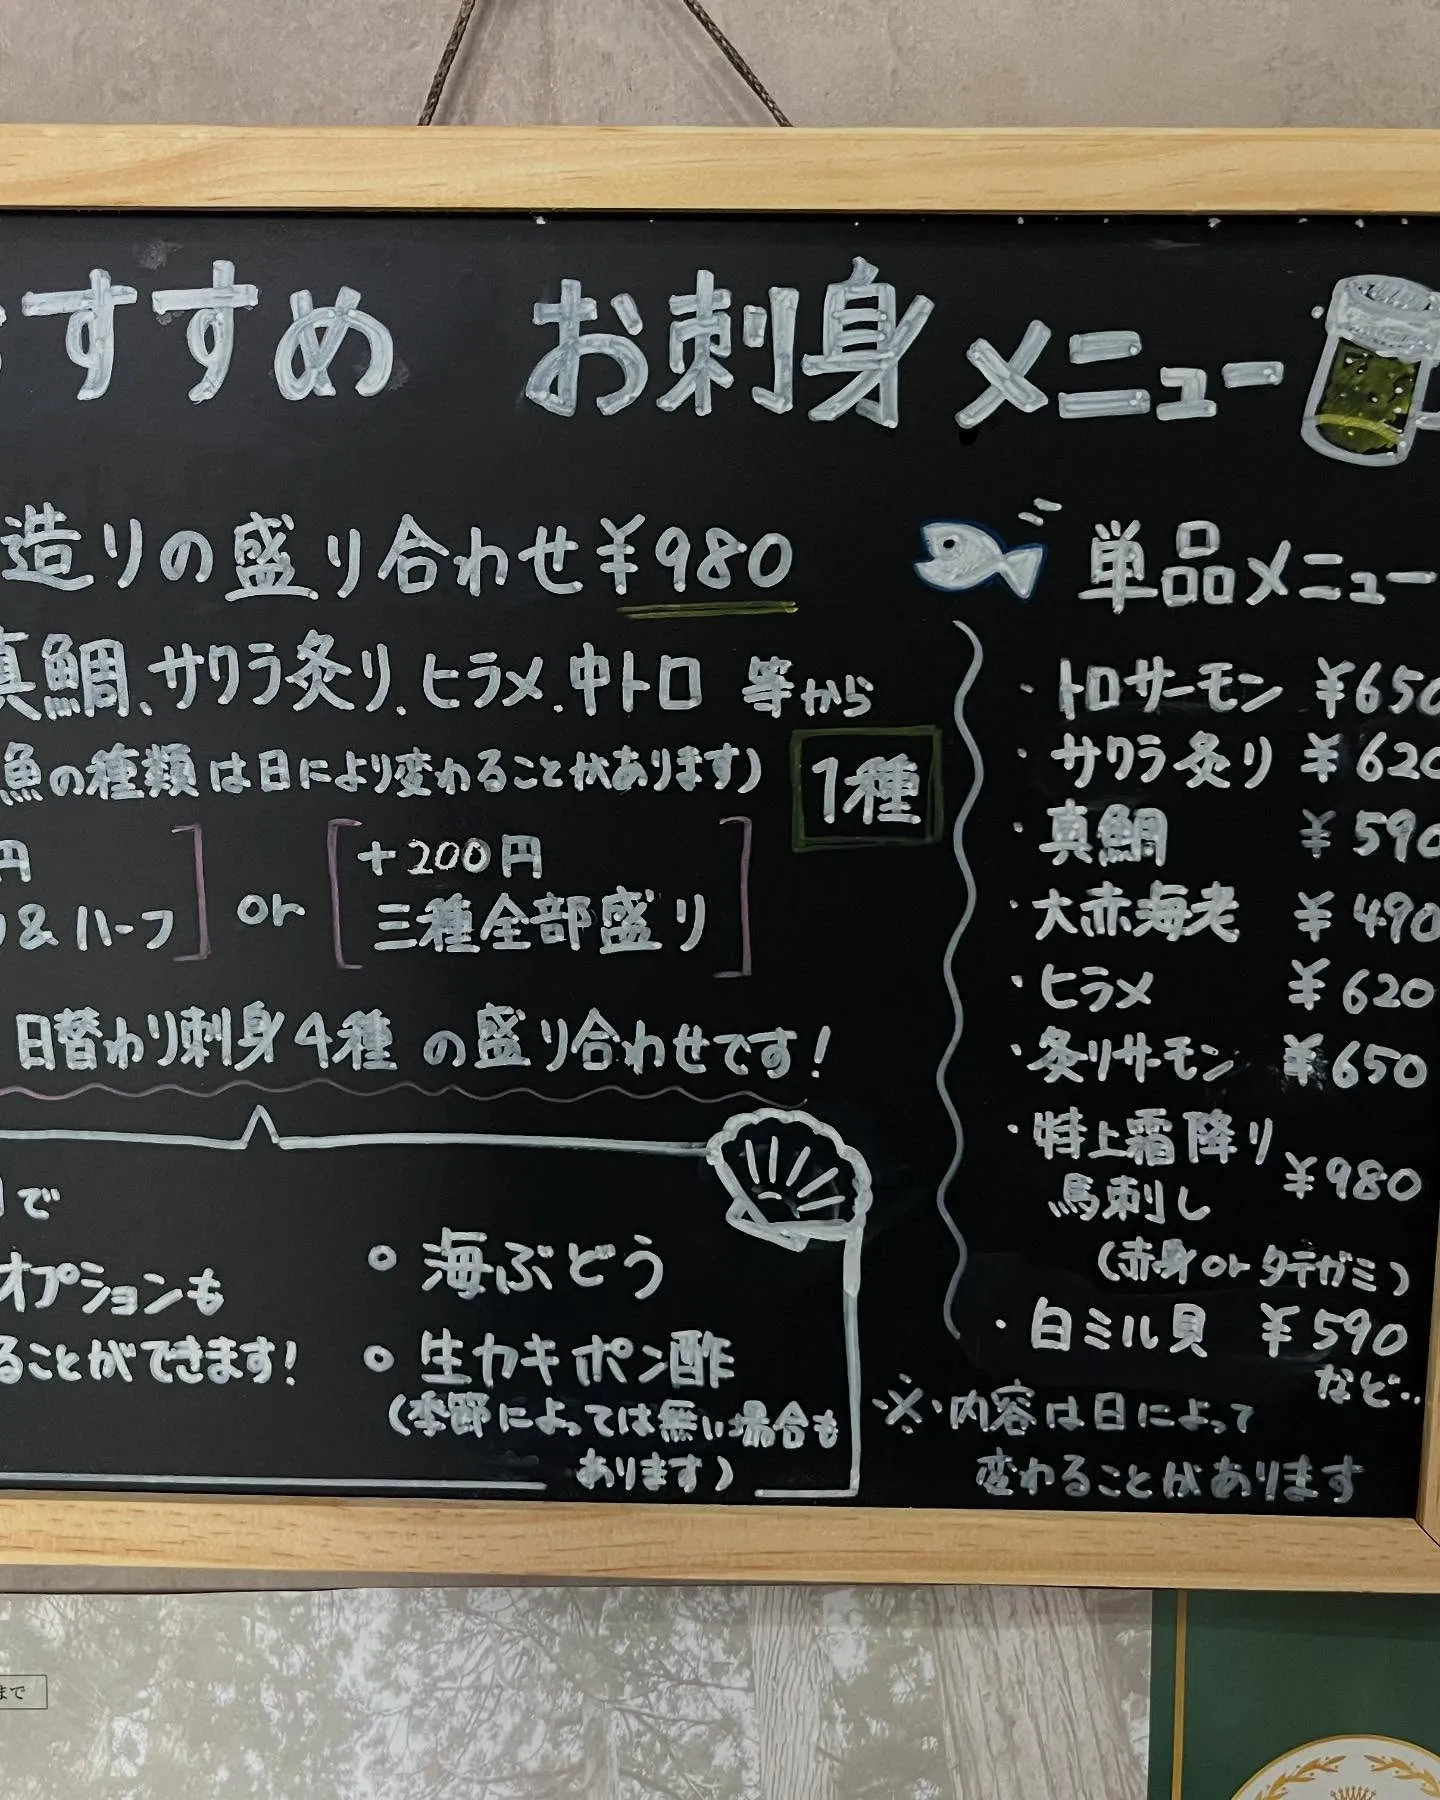 すすめ お刺身メニュー
造りの盛り合わせ ¥980
真鯛、サワラ炙り、ヒラメ、中トロ 等から
魚の種類は日により変わることがあります)
1種
円
& ハーフ
or
+200円
三種全部盛り
日替わり刺身4種の盛り合わせです!
で
オプションも
ることができます!
○ 海ぶどう
○ 生カキポン酢
(季節によっては無い場合も
あります)
単品メニュー
・トロサーモン ¥650
・サワラ炙り ¥620
・真鯛 ¥590
・大赤海老 ¥490
・ヒラメ ¥620
・炙りサーモン ¥650
・特上霜降り
馬刺し ¥980
(赤身 or タテガミ)
・白ミル貝 ¥590
など..
※・内容は日によって
変わることがあります
まで